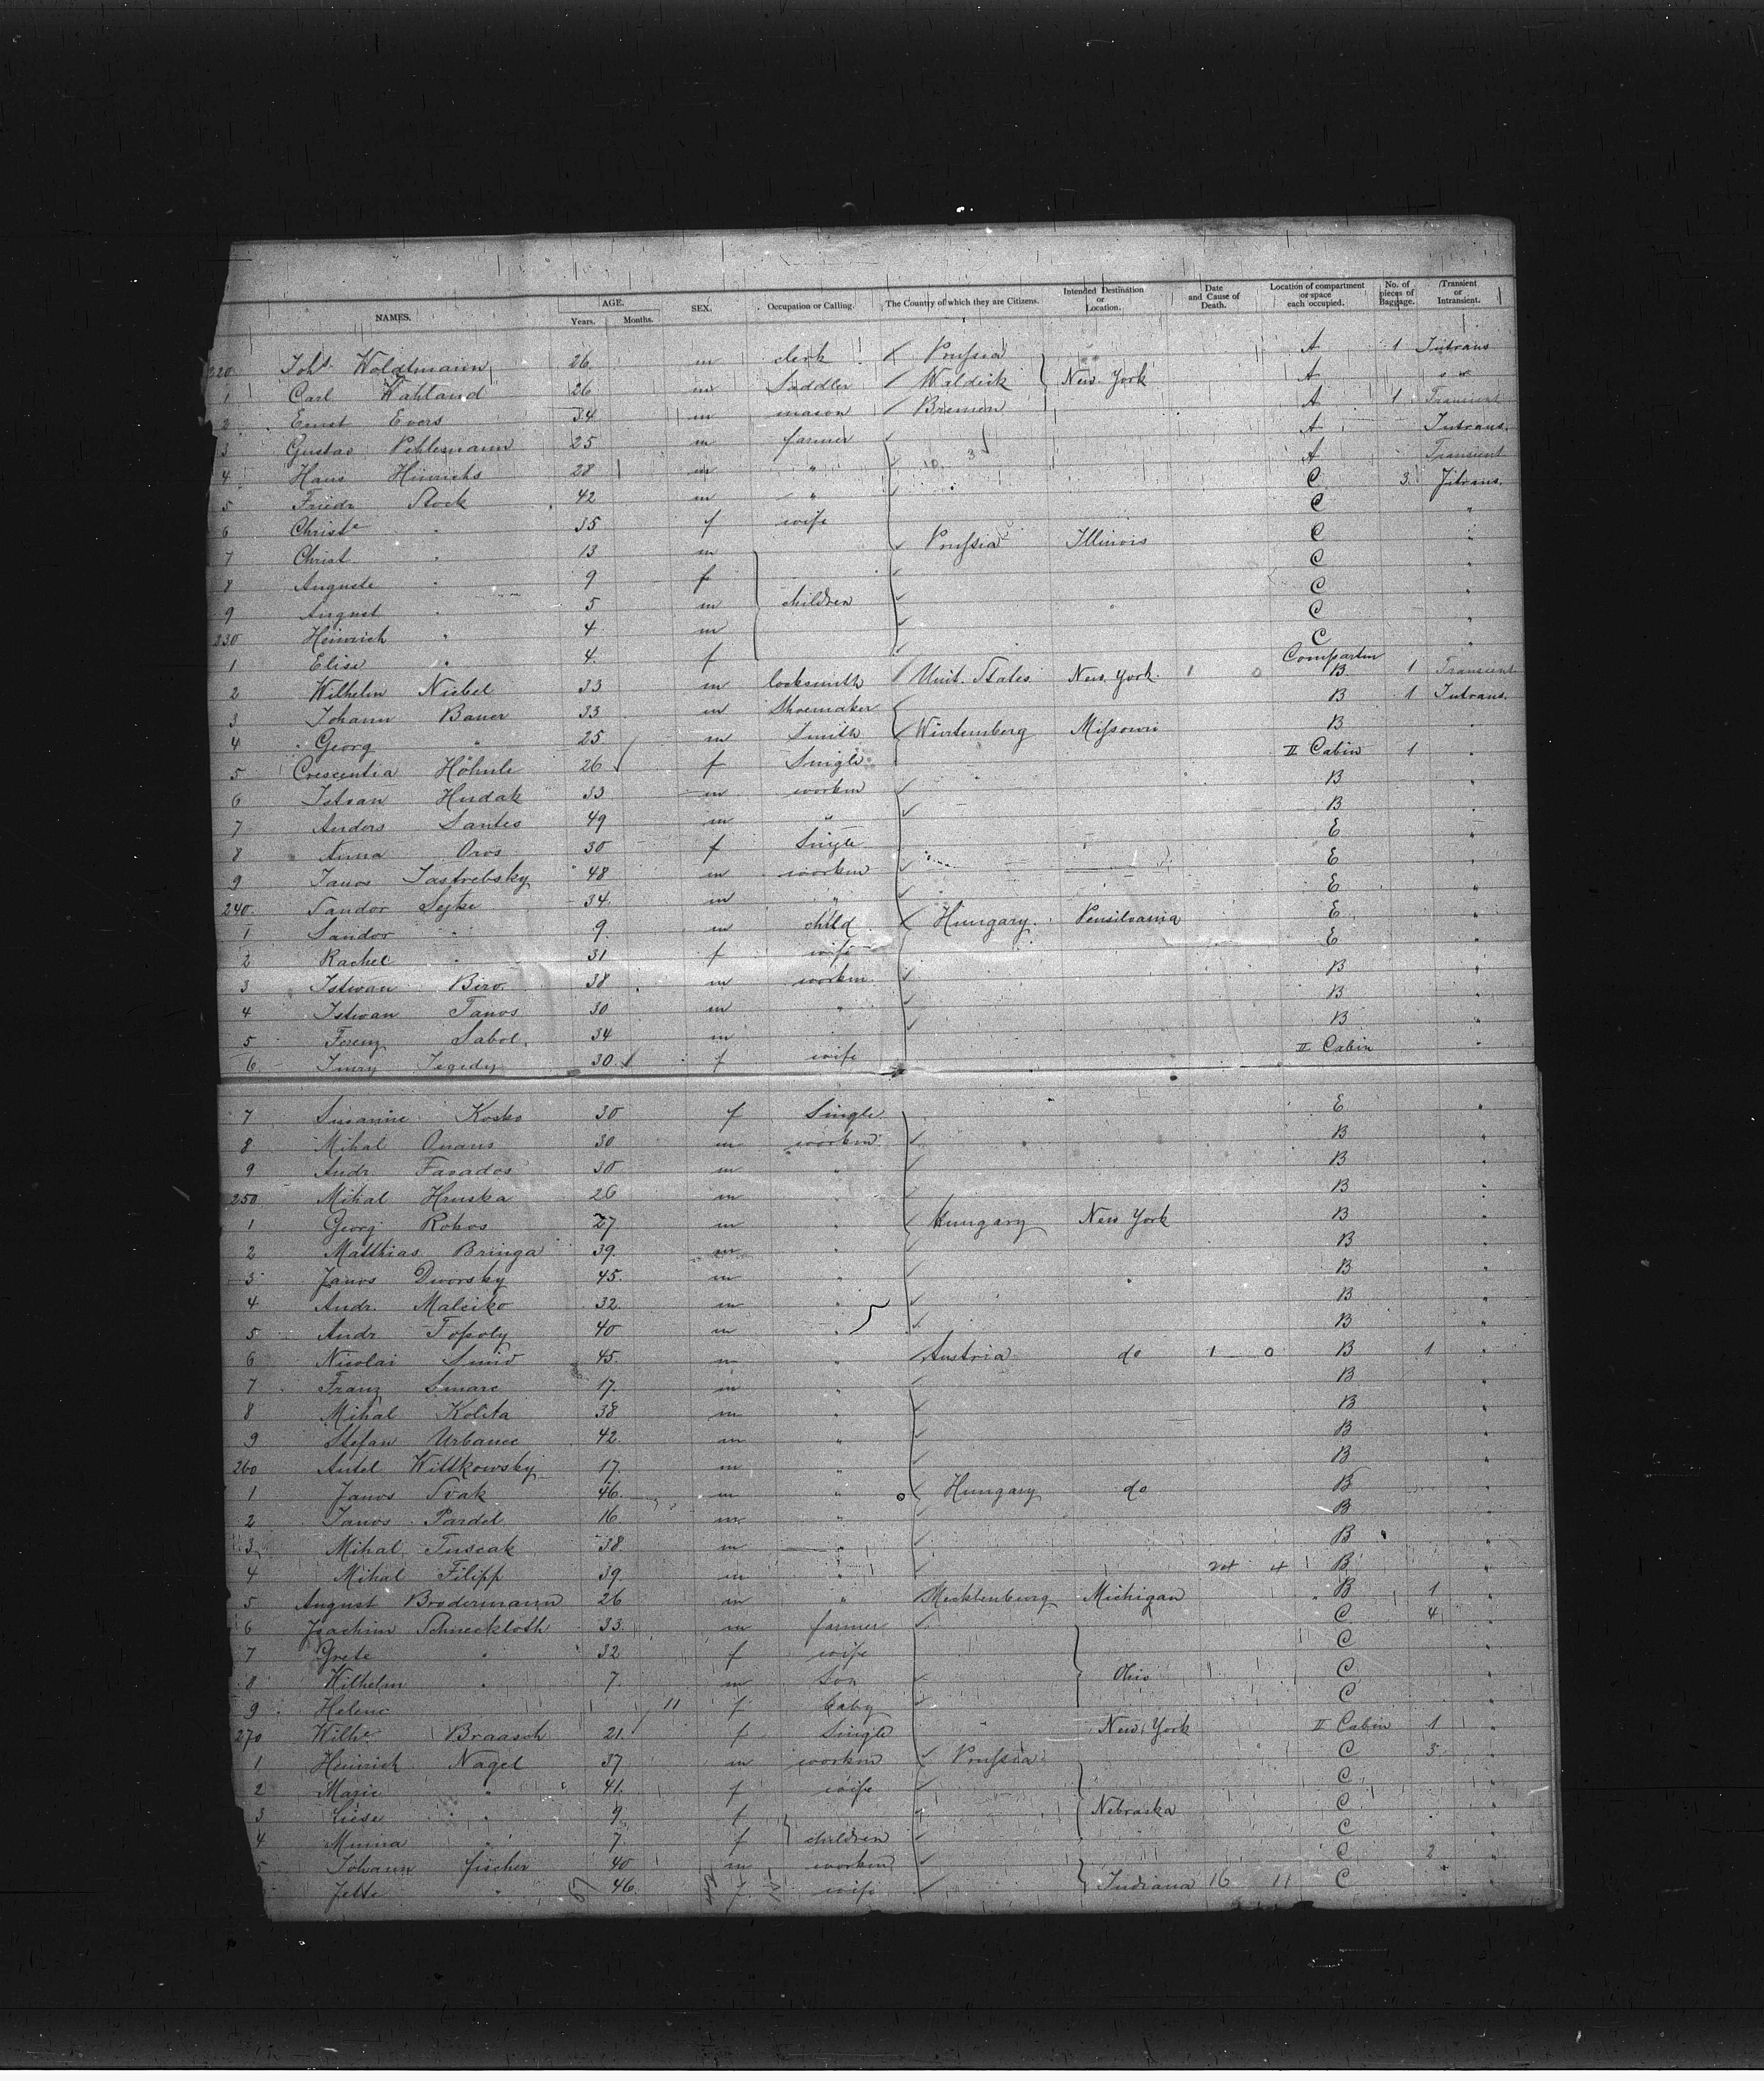 NAMES. AGE. Years. Months. SEX. Occupation or Calling. The Country of which they are Citizens. Intended Destination or Location. Date and Cause of Death. Location of compartment or space each occupied. No. of pieces of Baggage. Transient or Intransient.
220 Johs Woldtmann 26 m clerk Prussia A 1 Intrans
1 Carl Wahland 26 m Saddler Waldeck New York A "
2 Ernst Evers 34 m mason Bremen A 1 Transient
3 Gustav Pehlemann 25 m farmer A Intrans.
4 Hans Hinrichs 28 m " A Transient
5 Friedr Stock 42 m " C 3 Intrans.
6 Christe " 35 f wife C "
7 Christ " 13 m Prussia Illinois C "
8 Auguste " 9 f C "
9 August " 5 m children C "
230 Heinrich " 4 m C "
1 Elise " 4 f C "
2 Wilhelm Niebel 33 m locksmith Unit. States New York 1 0 Compartm B 1 Transient
3 Johann Bauer 33 m Shoemaker B 1 Intrans.
4 Georg " 25 m Smith Würtemberg Missouri B "
5 Crescentia Höhnle 26 f Single II Cabin 1 "
6 Istvan Hudak 33 m workm B "
7 Anders Santes 49 m " B "
8 Anna Oros 30 f Single E "
9 Janos Jastrebsky 48 m workm E "
240 Sandor Sejke 34 m " E "
1 Sandor " 9 m child Hungary Pensilvania E "
2 Rachel " 31 f wife E "
3 Istwan Biro 38 m workm B "
4 Istwan Janos 30 m " B "
5 Ferenz Sabol 34 m B "
6 Imry Tegedy 30 f wife II Cabin "
7 Susanne Kosko 30 f Single E "
8 Mihal 30 m workm B "
9 Andr Farados 30 m " B "
250 Mihal Hruska 26 m " B "
1 Georg Rokos 27 m " Hungary New York B "
2 Matthias Bringa 39 m " B "
3 Janos Dworsky 45 m " B "
4 Andr. Malciko 32 m " B "
5 Andr Topoly 40 m " B "
6 Nicolai 45 m " Austria do 1 0 B 1 "
7 Franz 17 m " B "
8 Mihal Kolita 38 m " B "
9 Stefan Urbanec 42 m " B "
260 Antel Wittkowsky 17 m " B "
1 Janos Svak 46 m " Hungary do B "
2 Janos Pardel 16 m " B "
3 Mihal Tuscak 38 m " B "
4 Mihal Filipp 39 m " 24 4 B "
5 August Brodermann 26 m " Mecklenburg Michigan B 1 "
6 Joachim Schneekloth 33 m farmer C 4 "
7 Grete " 32 f wife C "
8 Wilhelm " 7 m Son Ohio C "
9 Helene 11 f baby C "
270 Wilhe Braasch 21 f Single New York II Cabin 1 "
1 Heinrich Nagel 37 m workm Prussia C 3 "
2 Marie " 41 f wife C "
3 Liese " 9 f Nebraska C "
4 Minna " 7 f children C "
5 Johann Fischer 40 m workm C 2 "
Jette " 46 f wife Indiana 16 11 C "